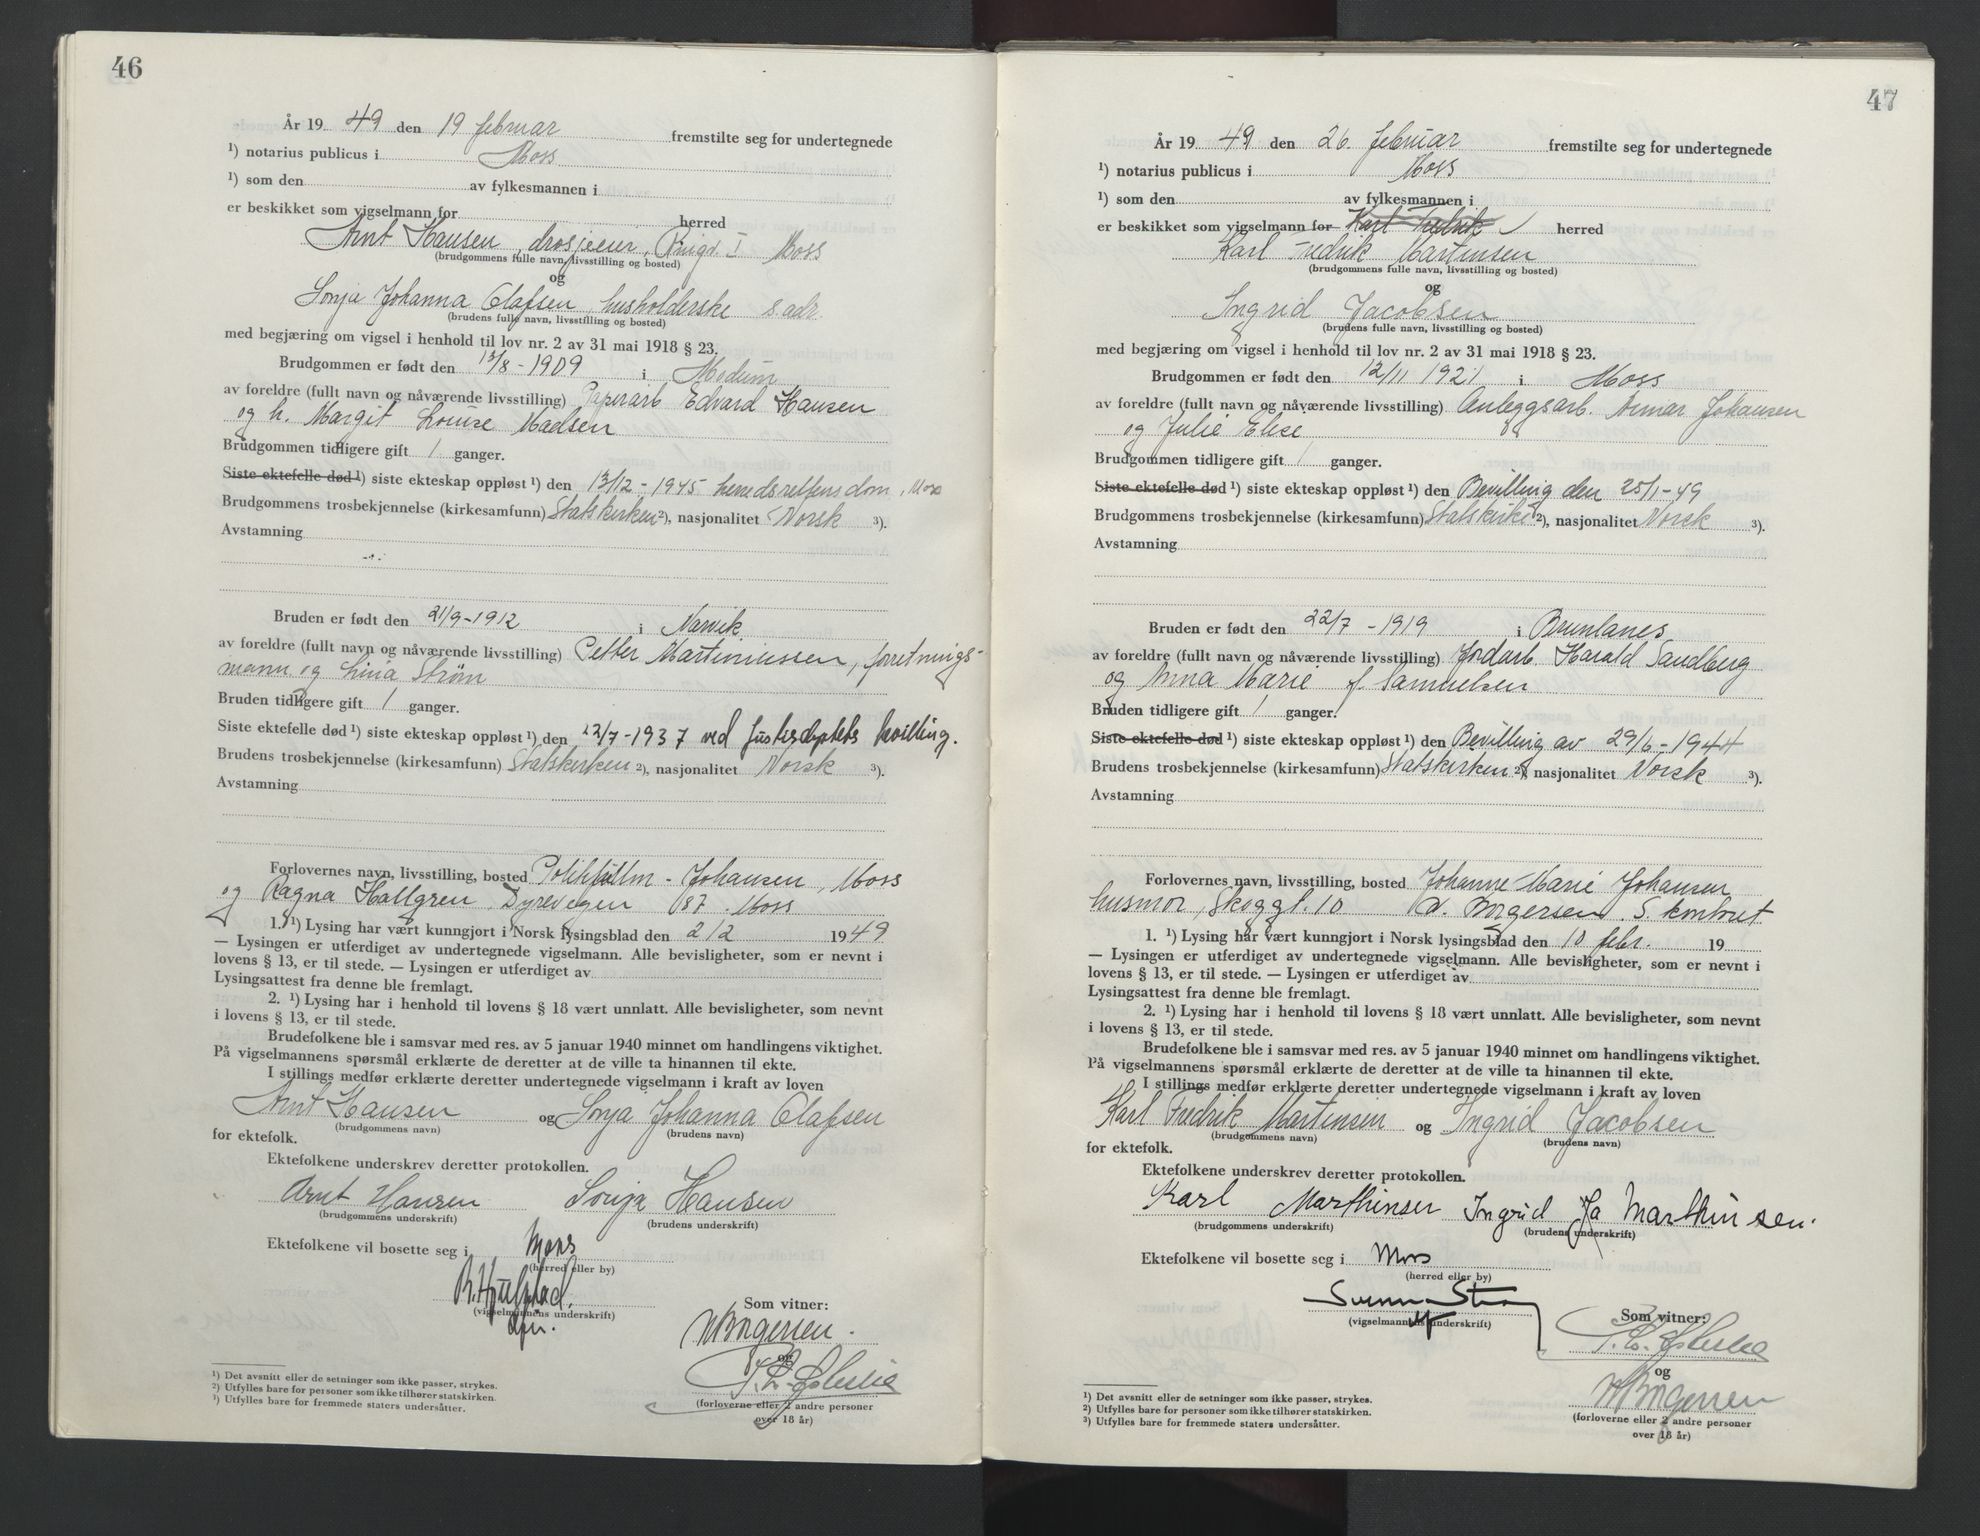 46
År 19 49 den 19 februar fremstilte seg for undertegnede
¹) notarius publicus i Moss
¹) som den av fylkesmannen i
er beskikket som vigselmann for herred
Arnt Hansen, drosjeeier, Ringv. I Moss
(brudgommens fulle navn, livsstilling og bosted)
og
Sonja Johanna Olafsen, husholderske s. adr.
(brudens fulle navn, livsstilling og bosted)
med begjæring om vigsel i henhold til lov nr. 2 av 31 mai 1918 § 23.
Brudgommen er født den 13/8 - 1909 i Modum
av foreldre (fullt navn og nåværende livsstilling) Papirarb Edvard Hansen
og h. Margit Louise Madsen
Brudgommen tidligere gift 1 ganger.
Siste ektefelle død ¹) siste ekteskap oppløst ¹) den 13/12 - 1945 herredsrettens dom, Moss
Brudgommens trosbekjennelse (kirkesamfunn) Statskirken ²), nasjonalitet Norsk ³).
Avstamning
Bruden er født den 21/9 - 1912 i Narvik
av foreldre (fullt navn og nåværende livsstilling) Petter Martiniussen, forretnings-
mann og Lina Strøm
Bruden tidligere gift 1 ganger.
Siste ektefelle død ¹) siste ekteskap oppløst ¹) den 12/7 - 1937 ved Justisdeptets bevilling.
Brudens trosbekjennelse (kirkesamfunn) Statskirken ²), nasjonalitet Norsk ³).
Avstamning
Forlovernes navn, livsstilling, bosted Johansen, Moss
og Ragna Hallgren, Dyrevegen 87. Moss
1. ¹) Lysing har vært kunngjort i Norsk lysingsblad den 2/2 1949
— Lysingen er utferdiget av undertegnede vigselmann. Alle bevisligheter, som er nevnt i
lovens § 13, er til stede. — Lysingen er utferdiget av
Lysingsattest fra denne ble fremlagt.
2. ¹) Lysing har i henhold til lovens § 18 vært unnlatt. Alle bevisligheter, som nevnt
i lovens § 13, er til stede.
Brudefolkene ble i samsvar med res. av 5 januar 1940 minnet om handlingens viktighet.
På vigselmannens spørsmål erklærte de deretter at de ville ta hinannen til ekte.
I stillings medfør erklærte deretter undertegnede vigselmann i kraft av loven
Arnt Hansen og Sonja Johanna Olafsen
(brudgommens navn) (brudens navn)
for ektefolk.
Ektefolkene underskrev deretter protokollen.
Arnt Hansen Sonja Hansen
(brudgommens underskrift) (brudens underskrift)
Ektefolkene vil bosette seg i Moss
(herred eller by)
(vigselmannens underskrift)
Som vitner:
Borgersen.
og
(forloverne eller 2 andre personer
over 18 år)
¹) Det avsnitt eller de setninger som ikke passer, strykes.
²) Utfylles bare for personer som ikke tilhører statskirken.
³) Utfylles bare for fremmede staters undersåtter.
47
År 19 49 den 26. februar fremstilte seg for undertegnede
¹) notarius publicus i Moss
¹) som den av fylkesmannen i
er beskikket som vigselmann for Karl Fredrik herred
Karl Fredrik Martinsen
(brudgommens fulle navn, livsstilling og bosted)
og
Ingrid Jacobsen
(brudens fulle navn, livsstilling og bosted)
med begjæring om vigsel i henhold til lov nr. 2 av 31 mai 1918 § 23.
Brudgommen er født den 12/11 1921 i Moss
av foreldre (fullt navn og nåværende livsstilling) Anleggsarb. Johansen
og Julie Elise
Brudgommen tidligere gift 1 ganger.
Siste ektefelle død ¹) siste ekteskap oppløst ¹) den Bevilling den 25/1-49
Brudgommens trosbekjennelse (kirkesamfunn) Statskirke ²), nasjonalitet Norsk ³).
Avstamning
Bruden er født den 22/7 - 1919 i Brunlanes
av foreldre (fullt navn og nåværende livsstilling) Jordarb. Harald Sandberg
og Anna Marie f. Samuelsen
Bruden tidligere gift 1 ganger.
Siste ektefelle død ¹) siste ekteskap oppløst ¹) den Bevilling av 29/6 - 1944
Brudens trosbekjennelse (kirkesamfunn) Statskirken ²), nasjonalitet Norsk ³).
Avstamning
Forlovernes navn, livsstilling, bosted Johanne Marie Johansen
husmor, Skoggt. 10 Borgersen. S. kontoret
1. ¹) Lysing har vært kunngjort i Norsk lysingsblad den 10 febr. 19
— Lysingen er utferdiget av undertegnede vigselmann. Alle bevisligheter, som er nevnt i
lovens § 13, er til stede. — Lysingen er utferdiget av
Lysingsattest fra denne ble fremlagt.
2. ¹) Lysing har i henhold til lovens § 18 vært unnlatt. Alle bevisligheter, som nevnt
i lovens § 13, er til stede.
Brudefolkene ble i samsvar med res. av 5 januar 1940 minnet om handlingens viktighet.
På vigselmannens spørsmål erklærte de deretter at de ville ta hinannen til ekte.
I stillings medfør erklærte deretter undertegnede vigselmann i kraft av loven
Karl Fredrik Martinsen og Ingrid Jacobsen
(brudgommens navn) (brudens navn)
for ektefolk.
Ektefolkene underskrev deretter protokollen.
Karl Marthinsen Ingrid Ja Marthinsen.
(brudgommens underskrift) (brudens underskrift)
Ektefolkene vil bosette seg i Moss
(herred eller by)
(vigselmannens underskrift)
Som vitner:
og
Borgersen
(forloverne eller 2 andre personer
over 18 år)
¹) Det avsnitt eller de setninger som ikke passer, strykes.
²) Utfylles bare for personer som ikke tilhører statskirken.
³) Utfylles bare for fremmede staters undersåtter.